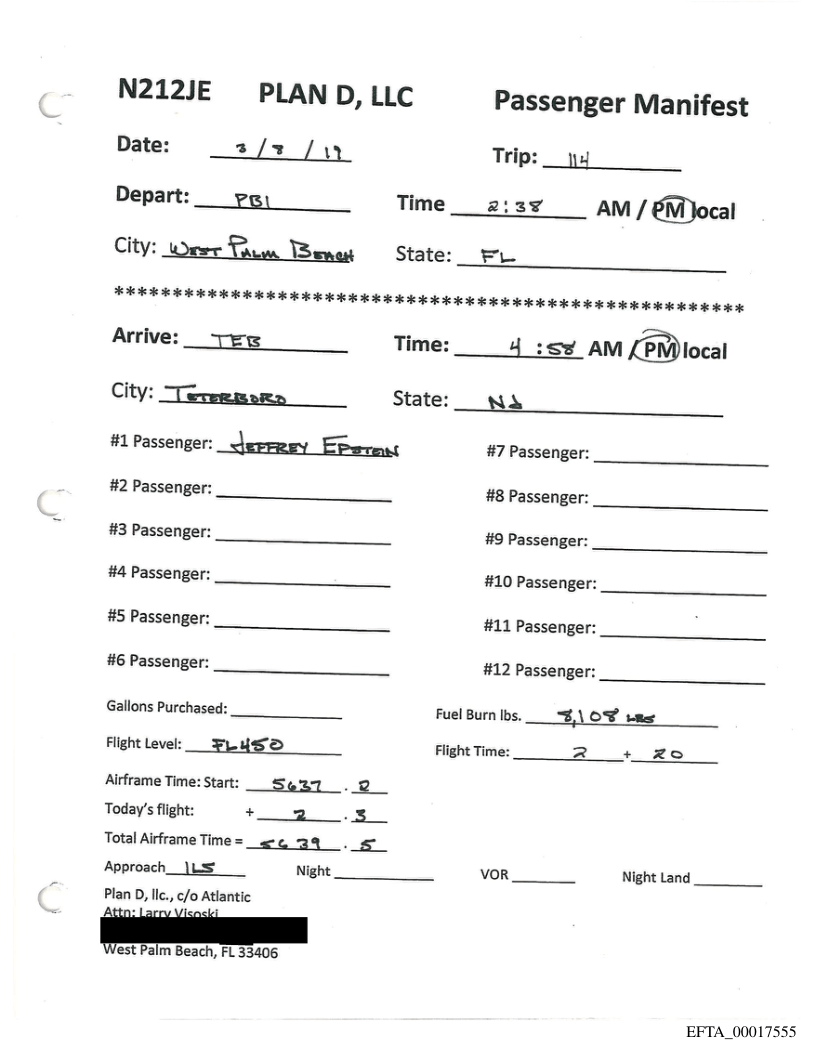 N212JE PLAN D, LLC Passenger Manifest
Date: 3 / 8 / 19 Trip: 114
Depart: PBI Time 2:38 AM / PM local
City: WEST PALM BEACH State: FL
******************************************************
Arrive: TEB Time: 4:58 AM / PM local
City: TETERBORO State: NJ
#1 Passenger: JEFFREY EPSTEIN #7 Passenger:
#2 Passenger: #8 Passenger:
#3 Passenger: #9 Passenger:
#4 Passenger: #10 Passenger:
#5 Passenger: #11 Passenger:
#6 Passenger: #12 Passenger:
Gallons Purchased: Fuel Burn lbs. 8,108 LBS
Flight Level: FL450 Flight Time: 2 + 20
Airframe Time: Start: 5637 . 2
Today's flight: + 2 . 3
Total Airframe Time = 5639 . 5
Approach ILS Night VOR Night Land
Plan D, llc., c/o Atlantic
Attn: Larry Visoski
West Palm Beach, FL 33406
EFTA_00017555